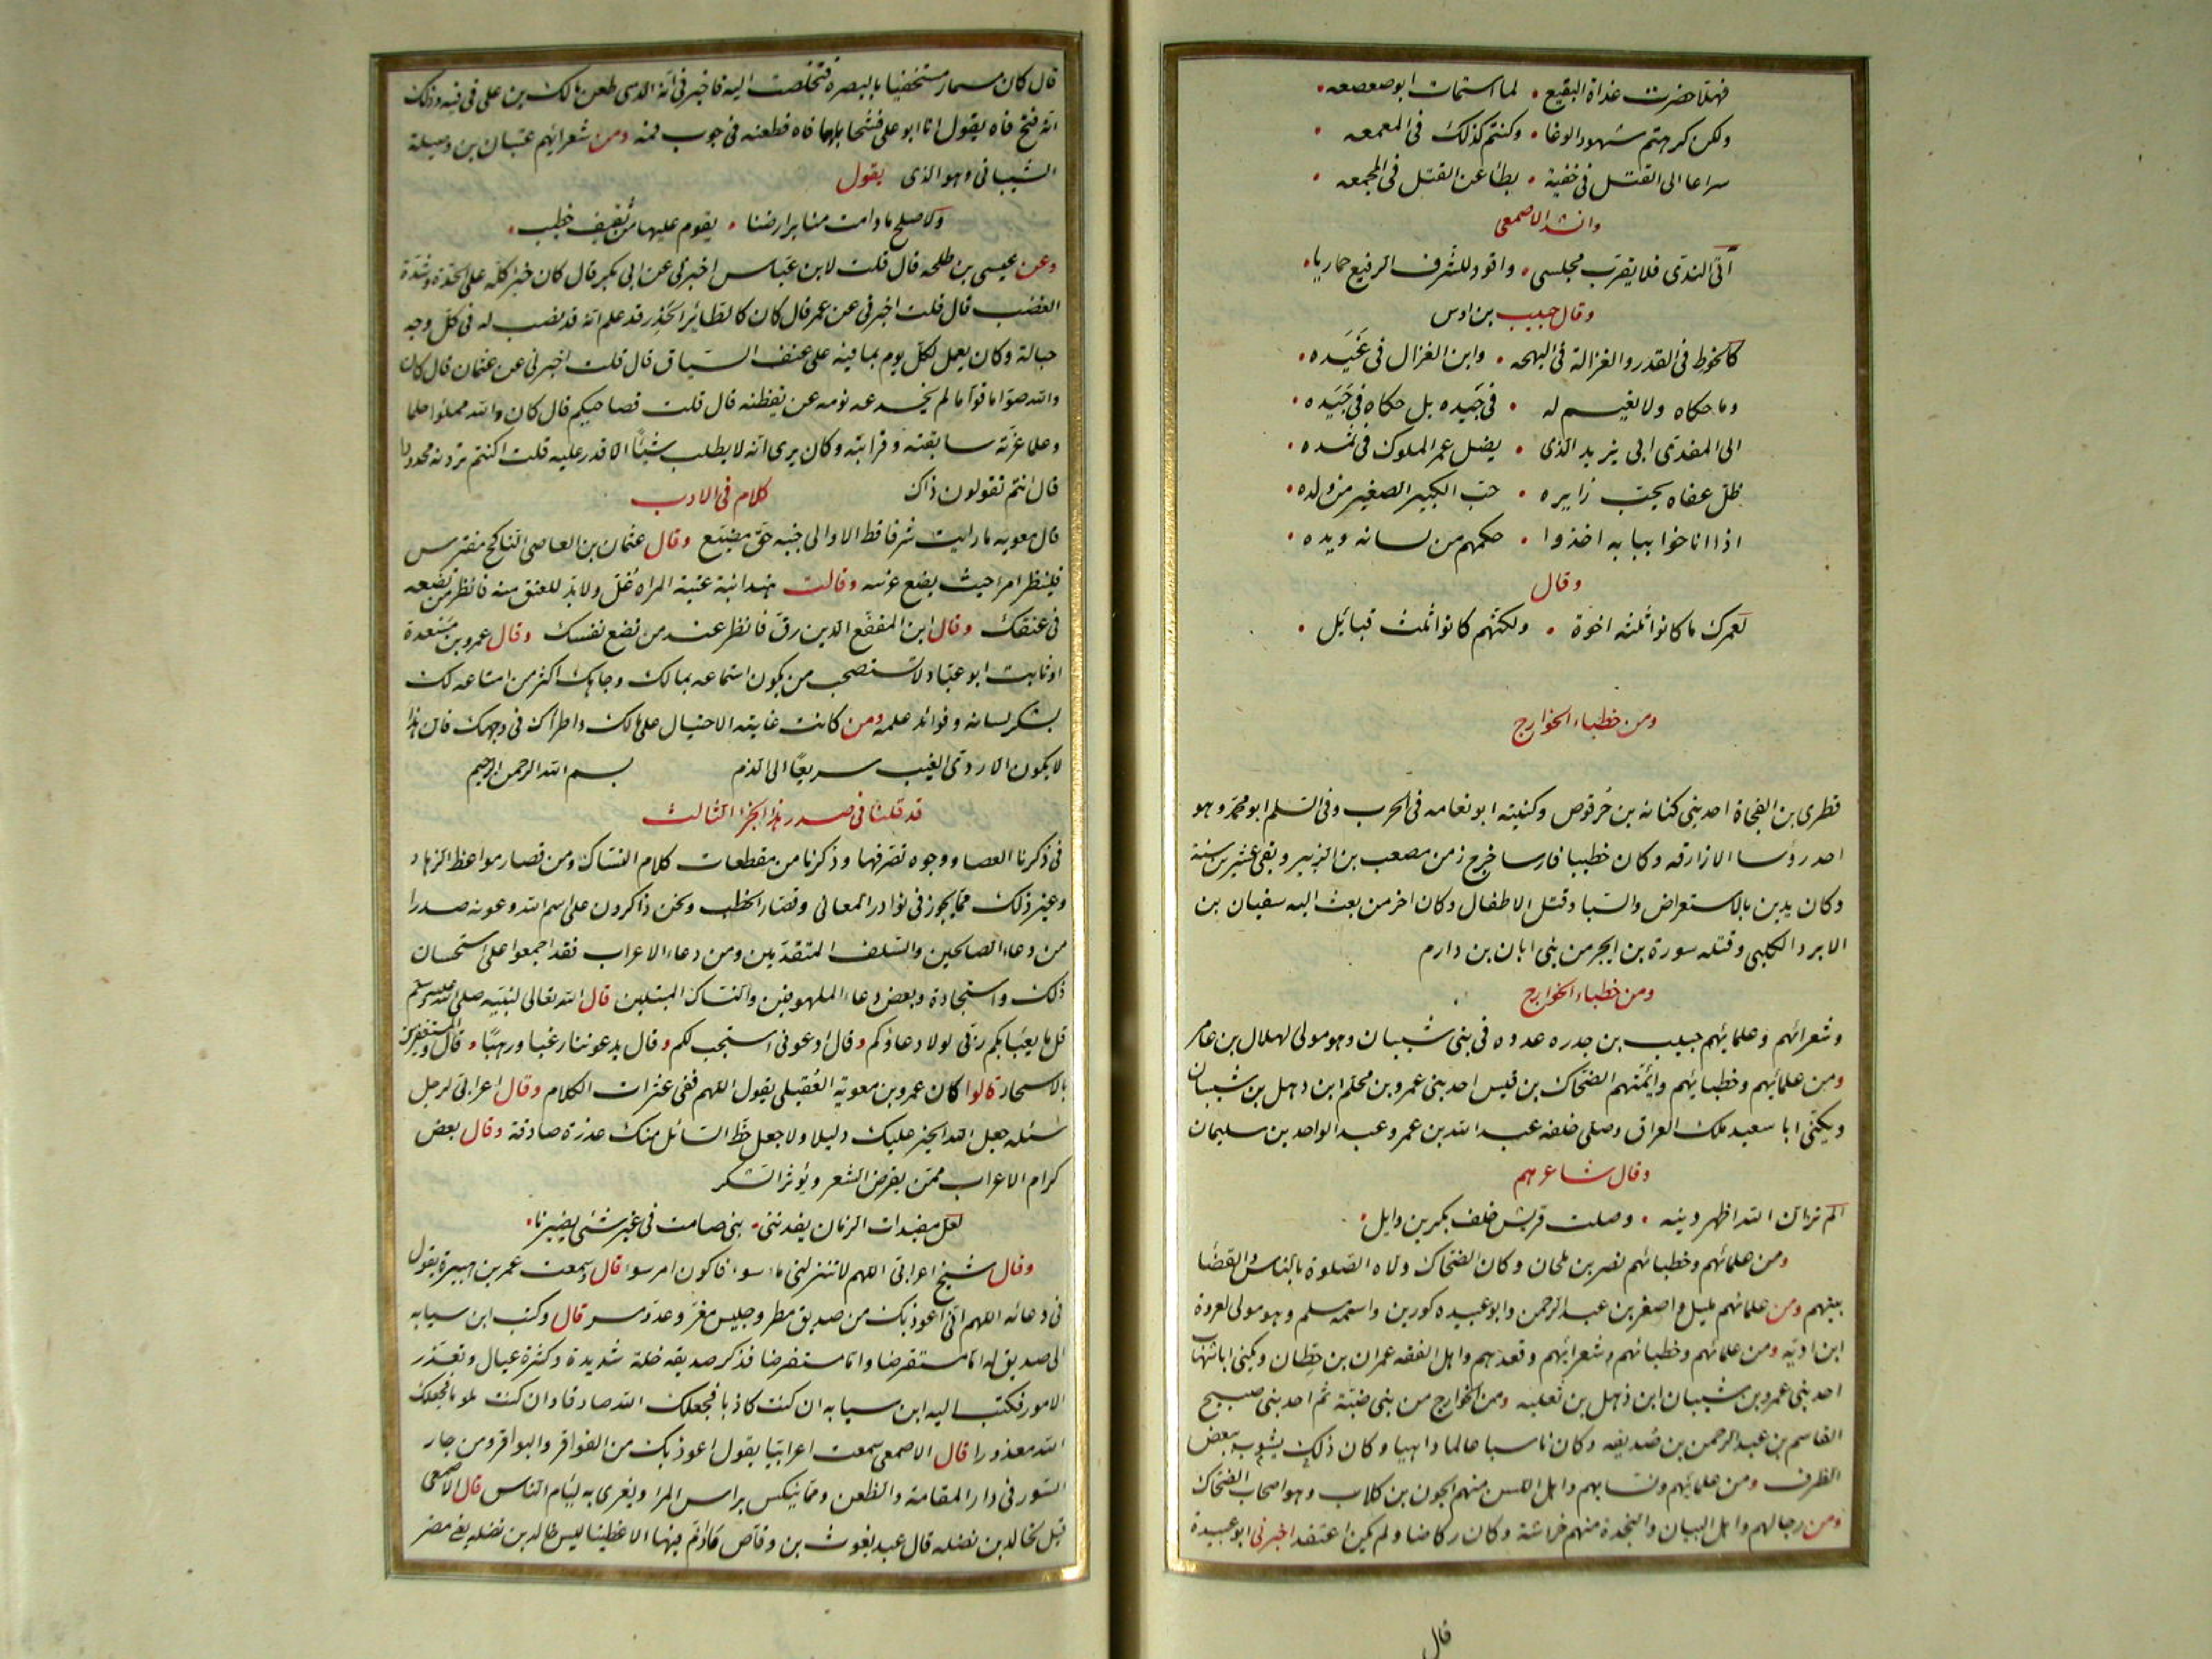 فهلا حضرت غداة البقيع • لما استمات ابو صعصعه •
ولكن كرهتم شهود الوغا • وكنتم كذلك فى المعمعه •
سراعا الى القتل فى خفية • بطاء عن القتل فى المجمعه •
وانشد الاصمعى
آتى الندى فلا يقرب مجلسى • واقود للشرف الرفيع حماريا •
وقال حبيب بن اوس
كالخوط فى القد والغزالة فى البهجه • وابن الغزال فى غَيَده •
وما حكاه ولا نعيم له • فى جيده بل حكاه فى جَيَده •
الى المفدى ابى يزيد الذى • يضل غمر الملوك فى ثمده •
ظل عفاه يحب زايره • حب الكبير الصغير من ولده •
اذا اناخوا ببابه اخذوا • حكمهم من لسانه ويده •
وقال
لعمرك ما كانوا ثلثه اخوة • ولكنهم كانوا ثلث قبائل •
ومن خطباء الخوارج
قطرى بن الفجاة احد بنى كنانه بن حُرقوص وكنيته ابو نعامه فى الحرب وفى السلم ابو محمد وهو
احد رؤسا الازارقه وكان خطيبا فارسا خرج زمن مصعب بن الزبير وبقى عشرين سنة
وكان يدين بالاستعراض والسبا وقتل الاطفال وكان اخر من بعث اليه سفيان بن
الابرد الكلبى وقتله سورة بن ابجر من بنى ابان بن دارم
ومن خطباء الخوارج
وشعرائهم وعلمائهم حبيب بن جدره عدوه فى بنى شيبان وهو مولى لهلال بن عامر
ومن علمائهم وخطبائهم وائمتهم الضحاك بن قيس احد بنى عمرو بن محلم ابن ذهل بن شيبان
ويكنى ابا سعيد ملك العراق وصلى خلفه عبد الله بن عمر وعبد الواحد بن سليمان
وقال شاعرهم
الم تر ان الله اظهر دينه • وصلت قريش خلف بكر بن وايل •
ومن علمائهم وخطبائهم نصر بن ملحان وكان الضحاك ولاه الصلوة بالناس والقضاء
بينهم ومن علمائهم مليل واصغر بن عبد الرحمن وابو عبيده كورين واسمه مسلم وهو مولى لعروة
ابن اديّه ومن علمائهم وخطبائهم وشعرائهم وقعدهم واهل الفقه عمران بن حِطان ويكنى ابا شهاب
احد بنى عمرو بن شيبان ابن ذهل بن ثعلبه ومن الخوارج من بنى ضبّة ثم احد بنى صبيح
القاسم بن عبد الرحمن بن صديقه وكان ناسبا عالما داهيا وكان ذلك يشوب ببعض
الظرف ومن علمائهم ونسابهم واهل اللسن منهم الجون بن كلاب وهو اصحاب الضحاك
ومن رجالهم واهل البيان والنجدة منهم خراشة وكان ركاضا ولم يكن اعتقد اخبرنى ابو عبيدة
قال
قال كان مسمار مستخفيا بالبصره فتخلصت اليه فاخبرنى انه الذى طعن مالك بن على فى فيه وذلك
انه فتح فاه يقول انا ابو على فشحا بها فاه فطعنه فى جوب فمه ومن شعرائهم عتبان بن وصيلة
الشيبانى وهو الذى يقول
ولا صلح ما دامت منابر ارضنا • يقوم عليها من ثقيف خطيب •
وعن عيسى بن طلحه قال قلت لابن عباس اخبرنى عن ابى بكر قال كان خيرا كله على الحدّة وشدّة
الغضب قال قلت اخبرنى عن عمر قال كان كالطائر الحذر قد علم انه قد نصب له فى كل وجه
حبالة وكان يعمل لكل يوم بما فيه على عنف السياق قال قلت اخبرنى عن عثمان قال كان
والله صوّاما قوّاما لم يخدعه نومه عن يقظته قال قلت فصاحبكم قال كان والله مملوا حلما
وعلما غرّته سابقته وقرابته وكان يرى انه لا يطلب شيئًا الا قدر عليه قلت اكنتم ترونه محدودا
قال انتم تقولون ذاك كلام فى الادب
قال معويه ما رايت شرفا قط الا والى جنبه حق مضيّع وقال عثمان بن العاصى الناكح مفترس
فلينظر امرا حيث يضع غرسه وقالت هند ابنة عتبة المراه غل ولا بد للعنق منه فانظر من تضعه
فى عنقك وقال ابن المقفع الدين رق فانظر عند من تضع نفسك وقال عمرو بن مسعدة
او ثابت ابو عباد لا تستصحب من يكون استماعه بمالك وجاهك اكثر من امتاعه لك
بشكر لسانه وفوائد علمه ومن كانت غايته الاحتيال على مالك واطراك فى وجهك فان هذا
لا يكون الا ردى الغيب سريعًا الى الذم بسم الله الرحمن الرحيم
قد قلنا فى صدر هذا الجزء الثالث
فى ذكرنا العصا ووجوه تصرفها وذكرنا من مقطعات كلام النساك ومن قصار مواعظ الزهاد
وغير ذلك مما يجوز فى نوادر المعانى وقصار الخطب ونحن ذاكرون على اسم الله وعونه صدرا
من دعاء الصالحين والسلف المتقدمين ومن دعاء الاعراب فقد اجمعوا على استحسان
ذلك واستجادة وبعض دعاء الملهوفين والنساك المبتلين قال الله تعالى لنبيه صلى الله عليه وسلم
قل ما يعبا بكم ربى لولا دعاؤكم وقال ادعونى استجب لكم وقال يدعوننا رغبا ورهبًا • قال والمستغفرين
بالاسحار قالوا كان عمرو بن معوية العُقيلى يقول اللهم قنى عثرات الكلام وقال اعرابى لرجل
اسئله جعل الله الخير عليك دليلا ولا جعل حظ السائل منك عذرة صادقة وقال بعض
كرام الاعراب ممن يقرض الشعر ويؤثر الشكر
لعل مفيدات الزمان يفدننى • بنى صامت فى غير شئى يضيرنا •
وقال شيخ اعرابى اللهم لا تنزلنى ماء سوء فاكون امر سوء قال وسمعت عمر بن هبيرة يقول
فى دعائه اللهم انى اعوذ بك من صديق مطر وجليس مغر وعدو مسر قال وكتب ابن سيابه
الى صديق له اما مستقرضا واما مستفرضا فذكر صديقه خلة شديدة وكثرة عيال وتعذر
الامور فكتب اليه ابن سيابه ان كنت كاذبا فجعلك الله صادقا وان كنت ملوما فجعلك
الله معذورا قال الاصمعى سمعت اعرابيا يقول اعوذ بك من الفواقر والبواقر ومن جار
السوء فى دار المقامة والظعن وما ينكس براس المرء ويغرى به لئام الناس قال الاصمعى
قيل لخالد بن نضله قال عبد يغوث بن وقاص ما اذم فيها الا غطينا ليس خالد بن نضله يعنى مضر